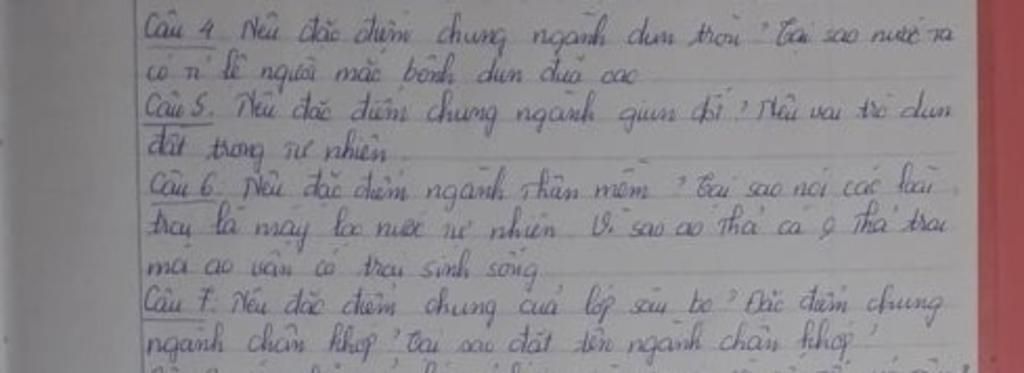 Câu 4. Nêu đặc điểm chung ngành dun tròn? Tại sao nước ta
có tỉ lệ người mắc bệnh dun đũa cao
Câu 5. Nêu đặc điểm chung ngành giun đốt? Nêu vai trò dun
đất trong tự nhiên
Câu 6. Nêu đặc điểm ngành thân mềm? Tại sao nói các loài
trai là máy lọc nước tự nhiên Vì sao ao thả cá thả trai
mà ao vẫn có trai sinh sống
Câu 7. Nêu đặc điểm chung của lớp sâu bọ? Đặc điểm chung
ngành chân khớp? Tại sao đặt tên ngành chân khớp?